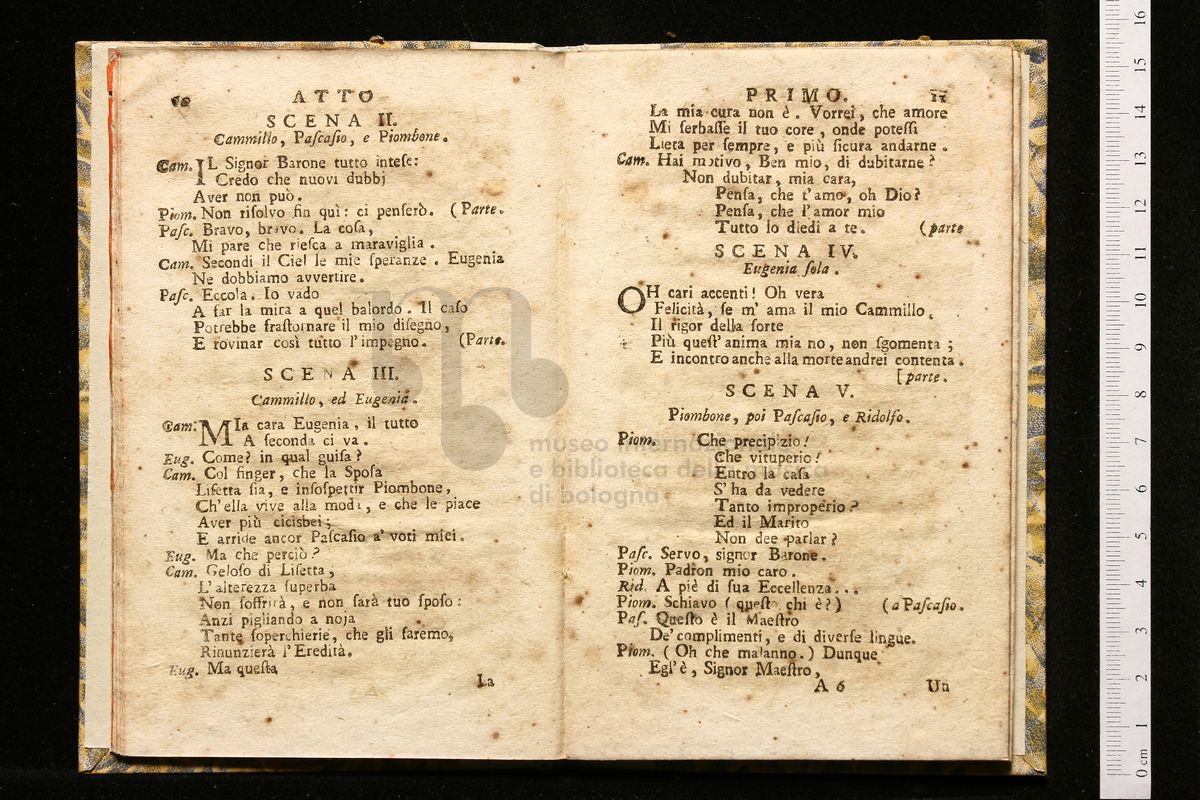 10 ATTO
SCENA II.
Cammillo, Paſcaſio, e Piombone.
Cam. IL Signor Barone tutto inteſe:
Credo che nuovi dubbj
Aver non può.
Piom. Non riſolvo fin quì: ci penſerò. (Parte.
Paſc. Bravo, bravo. La coſa,
Mi pare che rieſca a maraviglia.
Cam. Secondi il Ciel le mie ſperanze. Eugenia
Ne dobbiamo avvertire.
Paſc. Eccola. Io vado
A far la mira a quel balordo. Il caſo
Potrebbe fraſtornare il mio diſegno,
E rovinar così tutto l'impegno. (Parte.
SCENA III.
Cammillo, ed Eugenia.
Cam. MIa cara Eugenia, il tutto
A ſeconda ci va.
Eug. Come? in qual guiſa?
Cam. Col finger, che la Spoſa
Liſetta ſia, e inſoſpettir Piombone,
Ch'ella vive alla moda, e che le piace
Aver più cicisbei;
E arride ancor Paſcaſio a' voti miei.
Eug. Ma che perciò?
Cam. Geloſo di Liſetta,
L'alterezza ſuperba
Non ſoffrirà, e non ſarà tuo ſpoſo:
Anzi pigliando a noja
Tante ſoperchierie, che gli faremo,
Rinunzierà l'Eredità.
Eug. Ma queſta
La
PRIMO. 11
La mia cura non è. Vorrei, che amore
Mi ſerbaſſe il tuo core, onde poteſſi
Lieta per ſempre, e più ſicura andarne.
Cam. Hai motivo, Ben mio, di dubitarne?
Non dubitar, mia cara,
Penſa, che t'amo, oh Dio?
Penſa, che l'amor mio
Tutto lo diedi a te. (parte
SCENA IV.
Eugenia ſola.
OH cari accenti! Oh vera
Felicità, ſe m'ama il mio Cammillo,
Il rigor della ſorte
Più queſt'anima mia no, non ſgomenta;
E incontro anche alla morte andrei contenta.
[parte.
SCENA V.
Piombone, poi Paſcaſio, e Ridolfo.
Piom. Che precipizio!
Che vituperio!
Entro la caſa
S'ha da vedere
Tanto improperio?
Ed il Marito
Non dee parlar?
Paſc. Servo, signor Barone.
Piom. Padron mio caro.
Rid. A piè di ſua Eccellenza...
Piom. Schiavo (queſto chi è?) (a Paſcaſio.
Paſ. Queſto è il Maeſtro
De' complimenti, e di diverſe lingue.
Piom. (Oh che malanno.) Dunque
Egl'è, Signor Maeſtro,
A 6 Un
museo internazionale
e biblioteca della musica
di bologna
0 cm 1 2 3 4 5 6 7 8 9 10 11 12 13 14 15 16